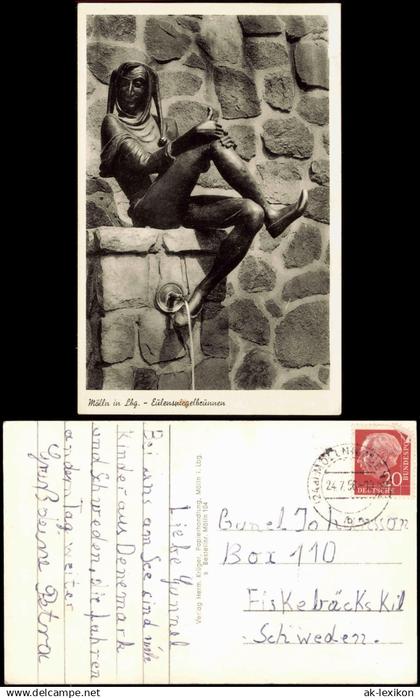 Mölln in Lbg. - Eulenspiegelbrunnen
Liebe Gunnel
Bei uns am See sind viele
Kinder aus Dänemark
und Schweden, die fahren
anderen Tag weiter
Gruß deine Petra
Verlag Herm. Krüger, Papierhandlung, Mölln i. Lbg.
Bestellnr. Mölln 104
(24a) MÖLLN
24.7.56
20
DEUTSCHE
BUNDESPOST
Gunel Johanson
Box 110
Fiskebäcks Kil
Schweden.
© www.ak-lexikon.de